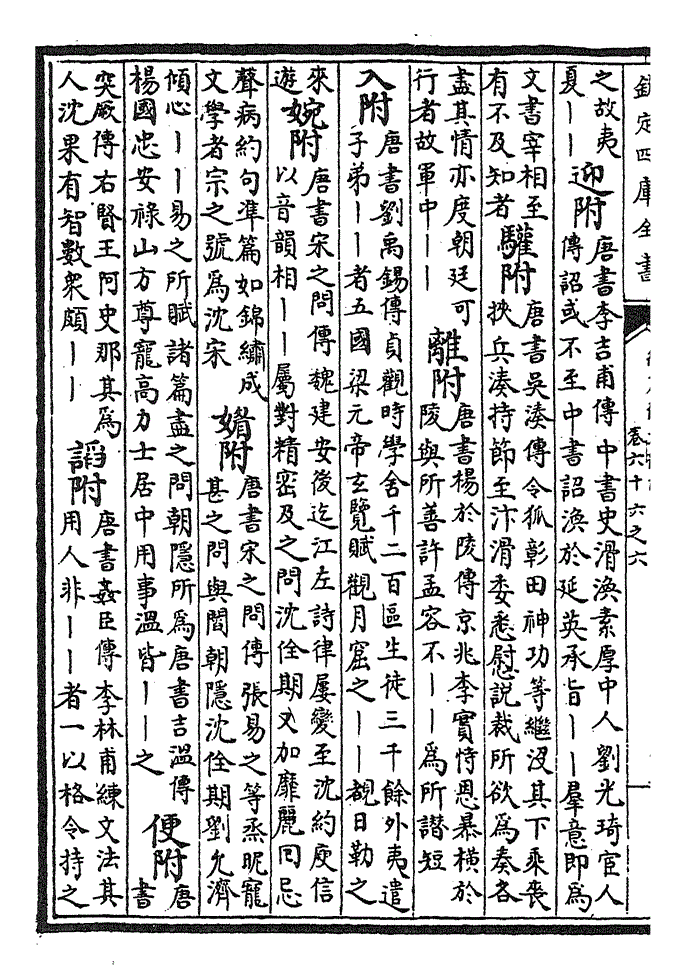 欽定四庫全書
卷六十六之六
之故夷
夏——
迎附
唐書李吉甫傳中書史滑渙素厚中人劉光琦宦人
傳詔或不至中書詔渙於延英承旨——羣意即為
文書宰相至
有不及知者
驩附
唐書吳湊傳令狐彰田神功等繼没其下乘喪
挾兵湊持節至汴滑委悉慰說裁所欲為奏各
盡其情亦度朝廷可
行者故軍中——
離附
唐書楊於陵傳京兆李實恃恩暴橫於
陵與所善許孟容不——為所譖短
入附
唐書劉禹錫傳貞觀時學舍千二百區生徒三千餘外夷遣
子弟——者五國梁元帝玄覽賦觀月窟之——覩日勒之
來
遊
婉附
唐書宋之問傳魏建安後迄江左詩律屢變至沈約庾信
以音韻相——屬對精密及之問沈佺期又加靡麗囘忌
聲病約句準篇如錦繡成
文學者宗之號為沈宋
媚附
唐書宋之問傳張易之等烝昵寵
甚之問與閻朝隱沈佺期劉允濟
傾心——易之所賦諸篇盡之問朝隱所為唐書吉溫傳
楊國忠安祿山方尊寵高力士居中用事溫皆——之
便附
唐
書
突厥傳右賢王阿史那其為
人沈果有智數衆頗——
謟附
唐書姦臣傳李林甫練文法其
用人非——者一以格令持之